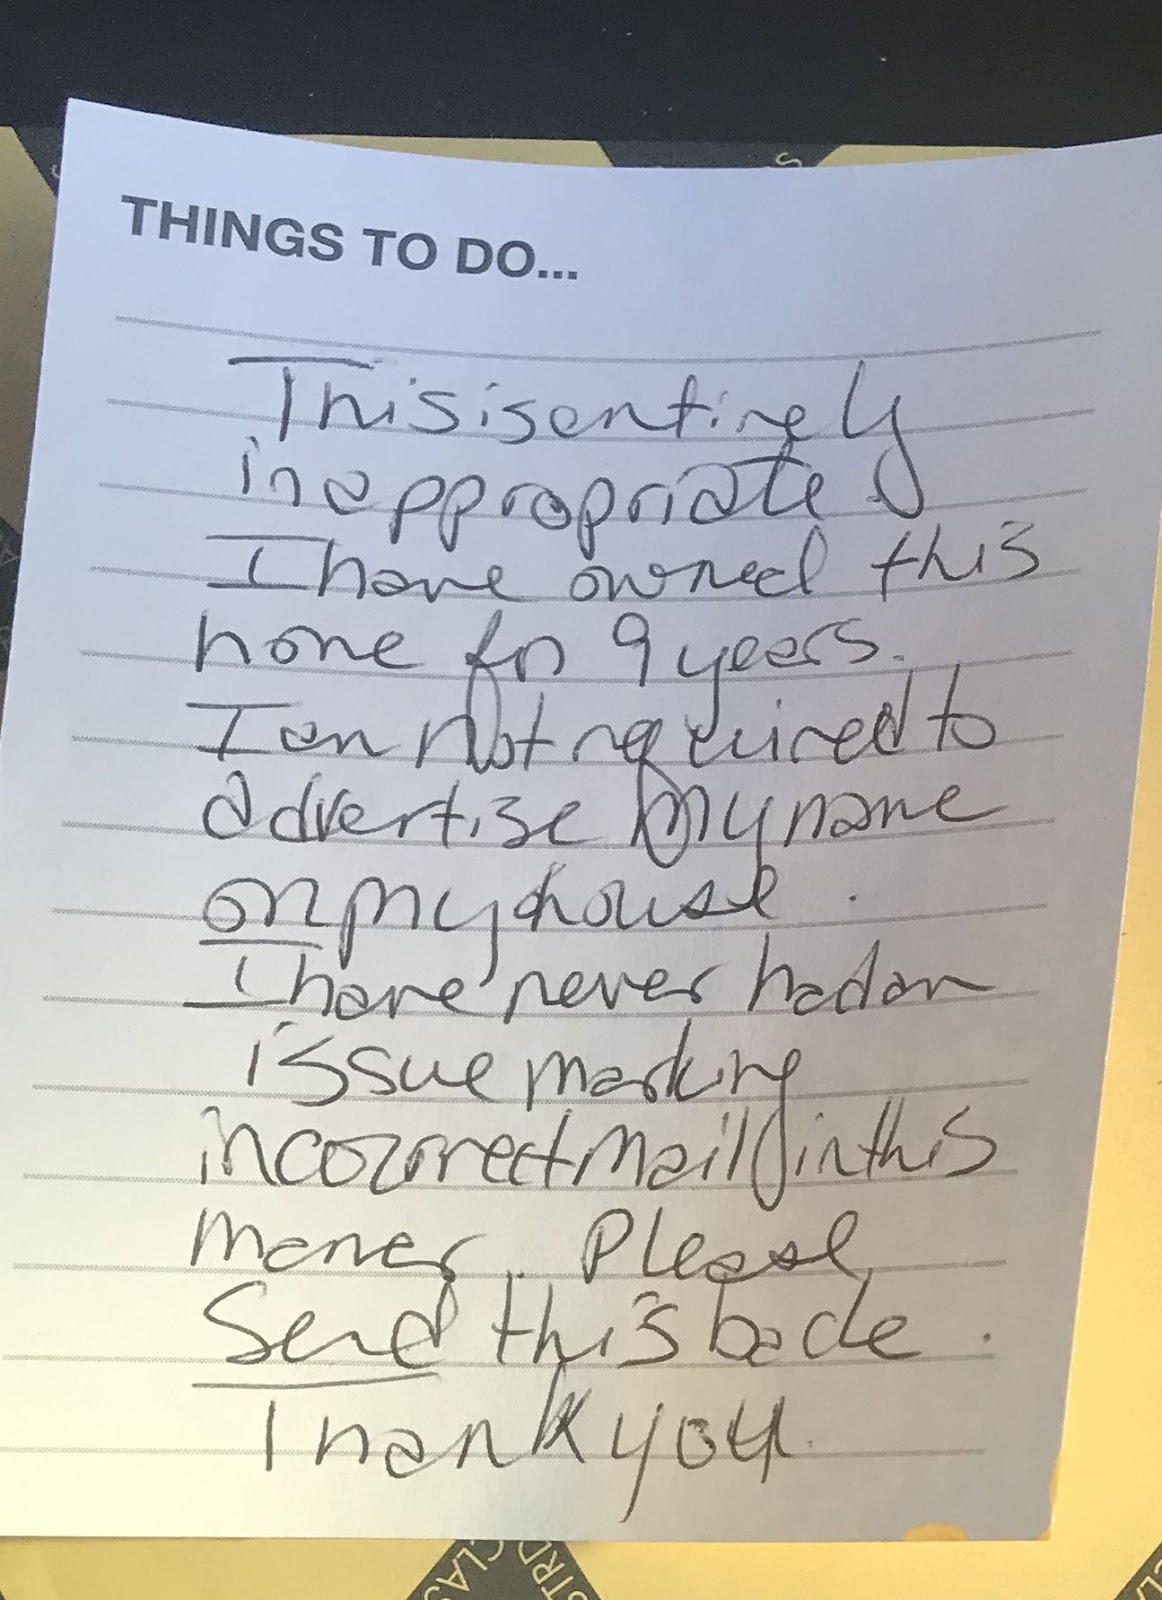 THINGS TO DO...
This is entirely
inappropriate
I have owned this
home for 9 years.
I am not required to
advertise my name
on my house.
I have never had an
issue marking
incorrect mail in this
maner. Please
Send this back.
Thank you.
CLAS
STRD